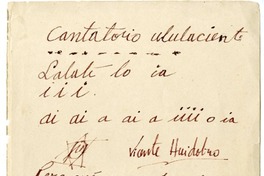 Cantatorio ululaciente
Lalate lo ia
i i i.
ai ai a ai a iiii o ia
Vicente Huidobro